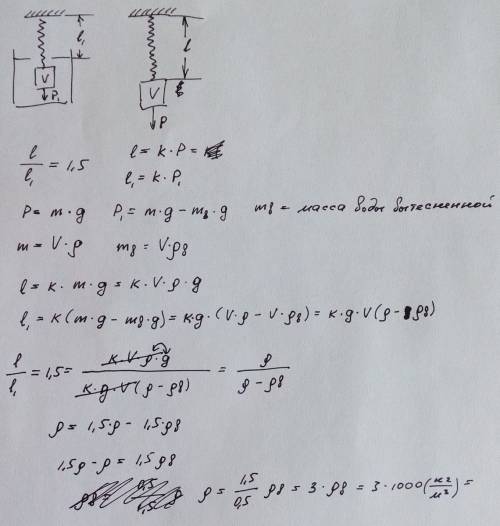 l₁ l
V V
P₁ P
l/l₁ = 1,5 l = k · P =
l₁ = k · P₁
P = m · g P₁ = m · g – mв · g mв = масса воды вытесненной
m = V · ρ mв = V · ρв
l = k · m · g = k · V · ρ · g
l₁ = k(m · g – mв · g) = k · g · (V · ρ – V · ρв) = k · g · V(ρ – ρв)
l/l₁ = 1,5 = k · V · ρ · g / k · g · V(ρ – ρв) = ρ / ρ – ρв
ρ = 1,5 · ρ – 1,5 ρв
1,5ρ – ρ = 1,5 ρв
ρ = 1,5/0,5 ρв = 3 · ρв = 3 · 1000 (кг/м³) =